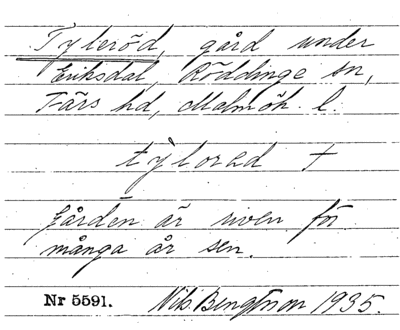 Tyleröd, gård under
Eriksdal, Röddinge sn,
Färs hd, Malmöh. l.
tỳlorəd +
Gården är riven för
många år sen.
Nr 5591. Nils Bengtson 1935.